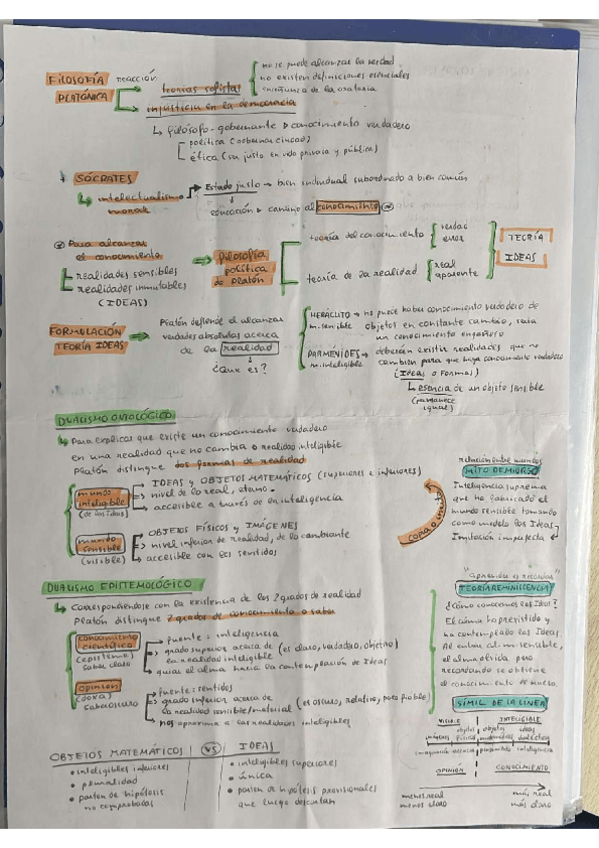 FILOSOFÍA PLATÓNICA reacción
teorías sofistas
no se puede alcanzar la verdad
no existen definiciones esenciales
enseñanza de la oratoria
injusticia en la democracia
↳ filósofo-gobernante → conocimiento verdadero
política (gobernar ciudad)
ética (ser justo en vida privada y pública)
SÓCRATES
↳ intelectualismo moral
Estado justo → bien individual subordinado a bien común
educación → camino al conocimiento
Para alcanzar el conocimiento
realidades sensibles
realidades inmutables
(IDEAS)
filosofía política de Platón
teoría del conocimiento
verdad
error
teoría de la realidad
real
aparente
TEORÍA IDEAS
FORMULACIÓN TEORÍA IDEAS
Platón defiende el alcanzar
verdades absolutas acerca
de la realidad
¿Qué es?
HERÁCLITO → no puede haber conocimiento verdadero de
m. sensible objetos en constante cambio, sería
un conocimiento engañoso
PARMÉNIDES → deberían existir realidades que no
m. inteligible cambian para que haya conocimiento verdadero
(Ideas o Formas)
↳ esencia de un objeto sensible
(permanece igual)
DUALISMO ONTOLÓGICO
↳ Para explicar que existe un conocimiento verdadero
en una realidad que no cambia o realidad inteligible
Platón distingue dos formas de realidad
mundo inteligible
(de las Ideas)
IDEAS y OBJETOS MATEMÁTICOS (superiores e inferiores)
nivel de lo real, eterno.
accesible a través de la inteligencia
mundo sensible
(visible)
OBJETOS FÍSICOS y IMÁGENES
nivel inferior de realidad, de lo cambiante
accesible con los sentidos
copia o imita
relación entre mundos
MITO DEMIURGO
Inteligencia suprema
que ha fabricado el
mundo sensible tomando
como modelo las Ideas
Imitación imperfecta
DUALISMO EPISTEMOLÓGICO
↳ Correspondiéndose con la existencia de los 2 grados de realidad
Platón distingue 2 grados de conocimiento o saber
conocimiento científico
(episteme)
saber claro
fuente: inteligencia
grado superior acerca de (es claro, verdadero, objetivo)
la realidad inteligible
guían el alma hacia la contemplación de Ideas
opinión
(doxa)
saber oscuro
fuente: sentidos
grado inferior acerca de
la realidad sensible/material (es oscuro, relativo, poco fiable)
nos aproxima a las realidades inteligibles
"aprender es recordar"
TEORÍA REMINISCENCIA
¿Cómo conocemos las Ideas?
El alma ha preexistido y
ha contemplado las Ideas.
Al entrar al m. sensible,
el alma olvida, pero
recordando se obtiene
el conocimiento de nuevo.
SÍMIL DE LA LÍNEA
VISIBLE INTELIGIBLE
imágenes objetos físicos objetos matemáticos ideas
imaginación creencia pensamiento inteligencia
OPINIÓN CONOCIMIENTO
menos real más real
menos claro más claro
OBJETOS MATEMÁTICOS VS IDEAS
• inteligibles inferiores
• pluralidad
• parten de hipótesis
no comprobadas
• inteligibles superiores
• única
• parten de hipótesis provisionales
que luego descartan